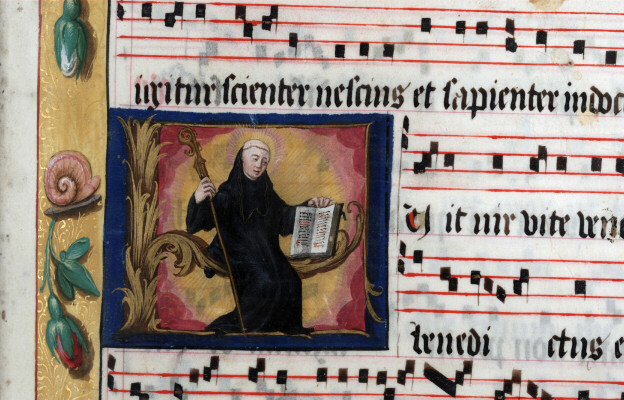 igitur scienter nescius et sapienter indoc
U it uir vite vene
benedi ctus e